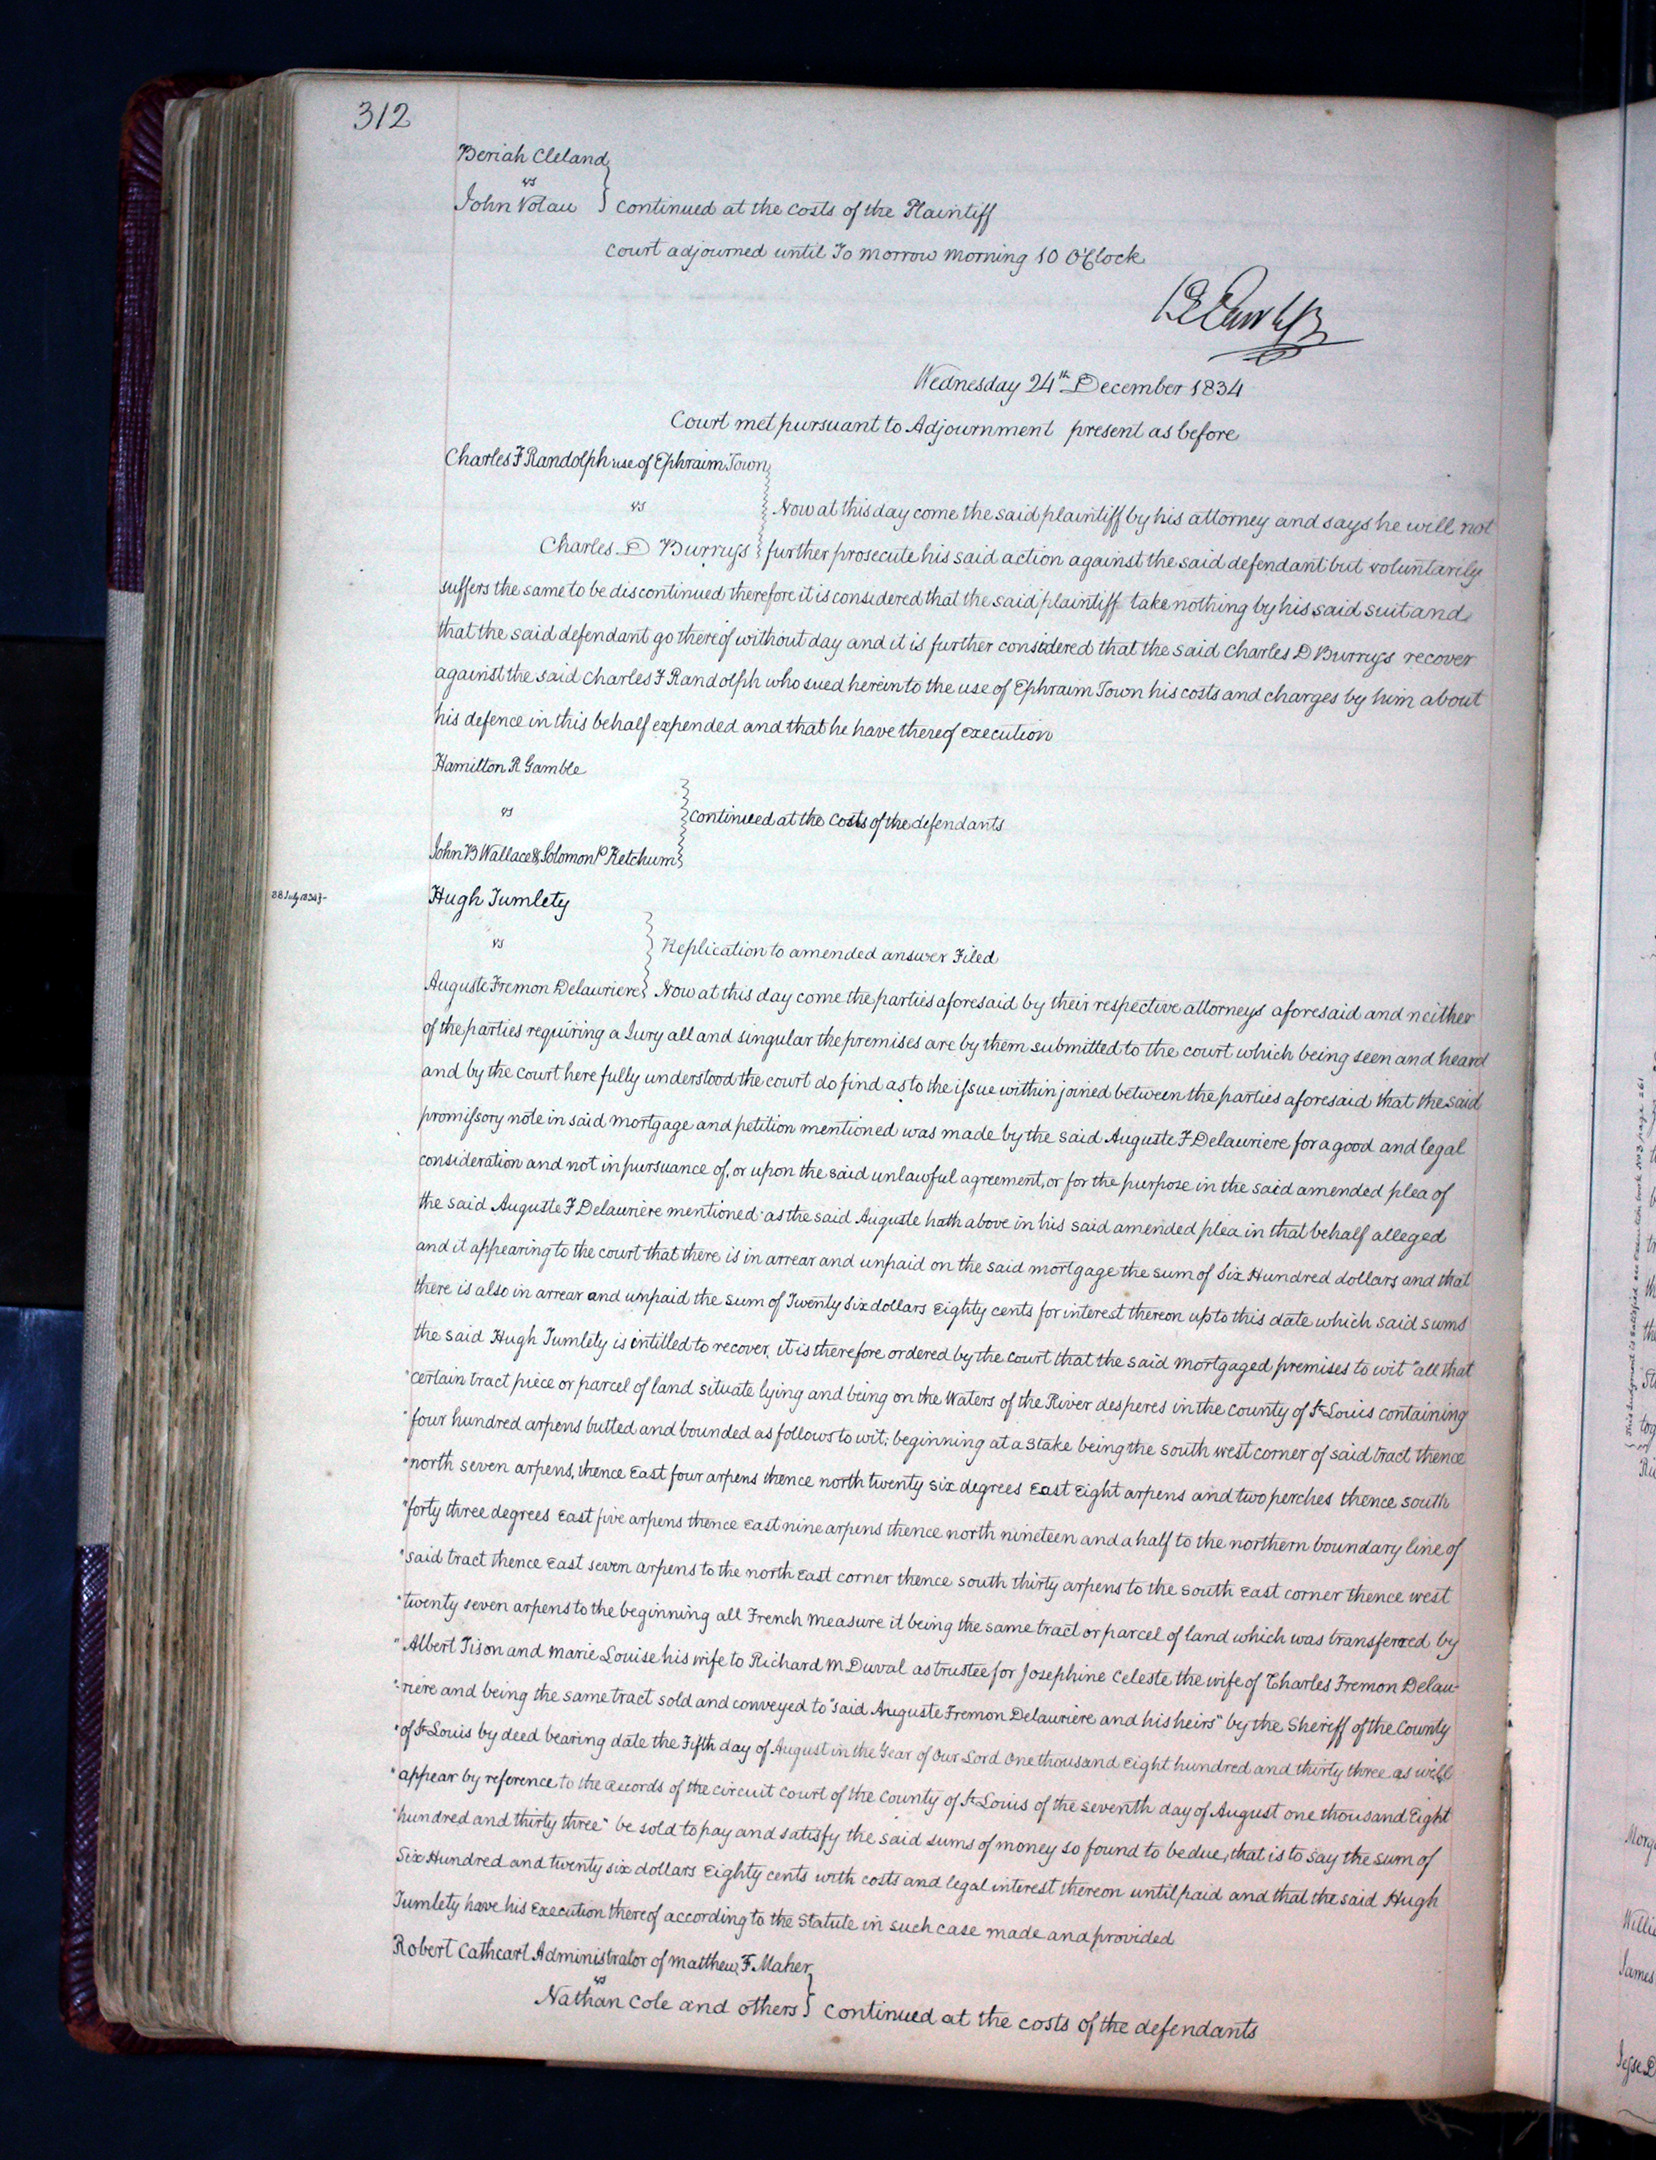 312
Beriah Cleland
vs
John Volau } continued at the costs of the Plaintiff
Court adjourned until To morrow morning 10 O'Clock
Wednesday 24th December 1834
Court met pursuant to Adjournment present as before
Charles F Randolph use of Ephraim Town
vs
Now at this day come the said plaintiff by his attorney and says he will not
Charles D Burrus } further prosecute his said action against the said defendant but voluntarily
suffers the same to be discontinued therefore it is considered that the said plaintiff take nothing by his said suit and
that the said defendant go thereof without day and it is further considered that the said Charles D Burrus recover
against the said Charles F Randolph who sued herein to the use of Ephraim Town his costs and charges by him about
his defence in this behalf expended and that he have thereof Execution
Hamilton R Gamble
vs
continued at the costs of the defendants
John B Wallace & Solomon P Ketchum
28 July 1834
Hugh Tumlety
vs
Replication to amended answer Filed
Auguste Fremon Delauriere } Now at this day come the parties aforesaid by their respective attorneys aforesaid and neither
of the parties requiring a Jury all and singular the premises are by them submitted to the court which being seen and heard
and by the court here fully understood the court do find as to the issue within joined between the parties aforesaid that the said
promissory note in said mortgage and petition mentioned was made by the said Auguste F Delauriere for a good and legal
consideration and not in pursuance of, or upon the said unlawful agreement, or for the purpose in the said amended plea of
the said Auguste F Delauriere mentioned as the said Auguste hath above in his said amended plea in that behalf alleged
and it appearing to the court that there is in arrear and unpaid on the said mortgage the sum of Six Hundred dollars and that
there is also in arrear and unpaid the sum of Twenty Six dollars Eighty cents for interest thereon up to this date which said sums
the said Hugh Tumlety is intitled to recover, it is therefore ordered by the court that the said mortgaged premises to wit "all that
"certain tract piece or parcel of land situate lying and being on the Waters of the River desperes in the county of St Louis containing
"four hundred arpens butted and bounded as follows to wit; beginning at a stake being the south west corner of said tract thence
"north seven arpens, thence East four arpens thence north twenty six degrees East Eight arpens and two perches thence south
"forty three degrees East five arpens thence East nine arpens thence north nineteen and a half to the northern boundary line of
"said tract thence East seven arpens to the north East corner thence south thirty arpens to the south East corner thence west
"twenty seven arpens to the beginning all French measure it being the same tract or parcel of land which was transferred by
"Albert Tison and Marie Louise his wife to Richard M Duval as trustee for Josephine Celeste the wife of Charles Fremon Delau-
"-riere and being the same tract sold and conveyed to "said Auguste Fremon Delauriere and his heirs" by the Sheriff of the County
"of St Louis by deed bearing date the Fifth day of August in the Year of Our Lord One thousand Eight hundred and thirty three as will
"appear by reference to the records of the circuit court of the County of St Louis of the seventh day of August one thousand Eight
"hundred and thirty three" be sold to pay and satisfy the said sums of money so found to be due, that is to say the sum of
Six Hundred and twenty six dollars Eighty cents with costs and legal interest thereon until paid and that the said Hugh
Tumlety have his Execution thereof according to the Statute in such case made and provided
Robert Cathcart Administrator of Matthew F Maher
vs
Nathan Cole and others } continued at the costs of the defendants